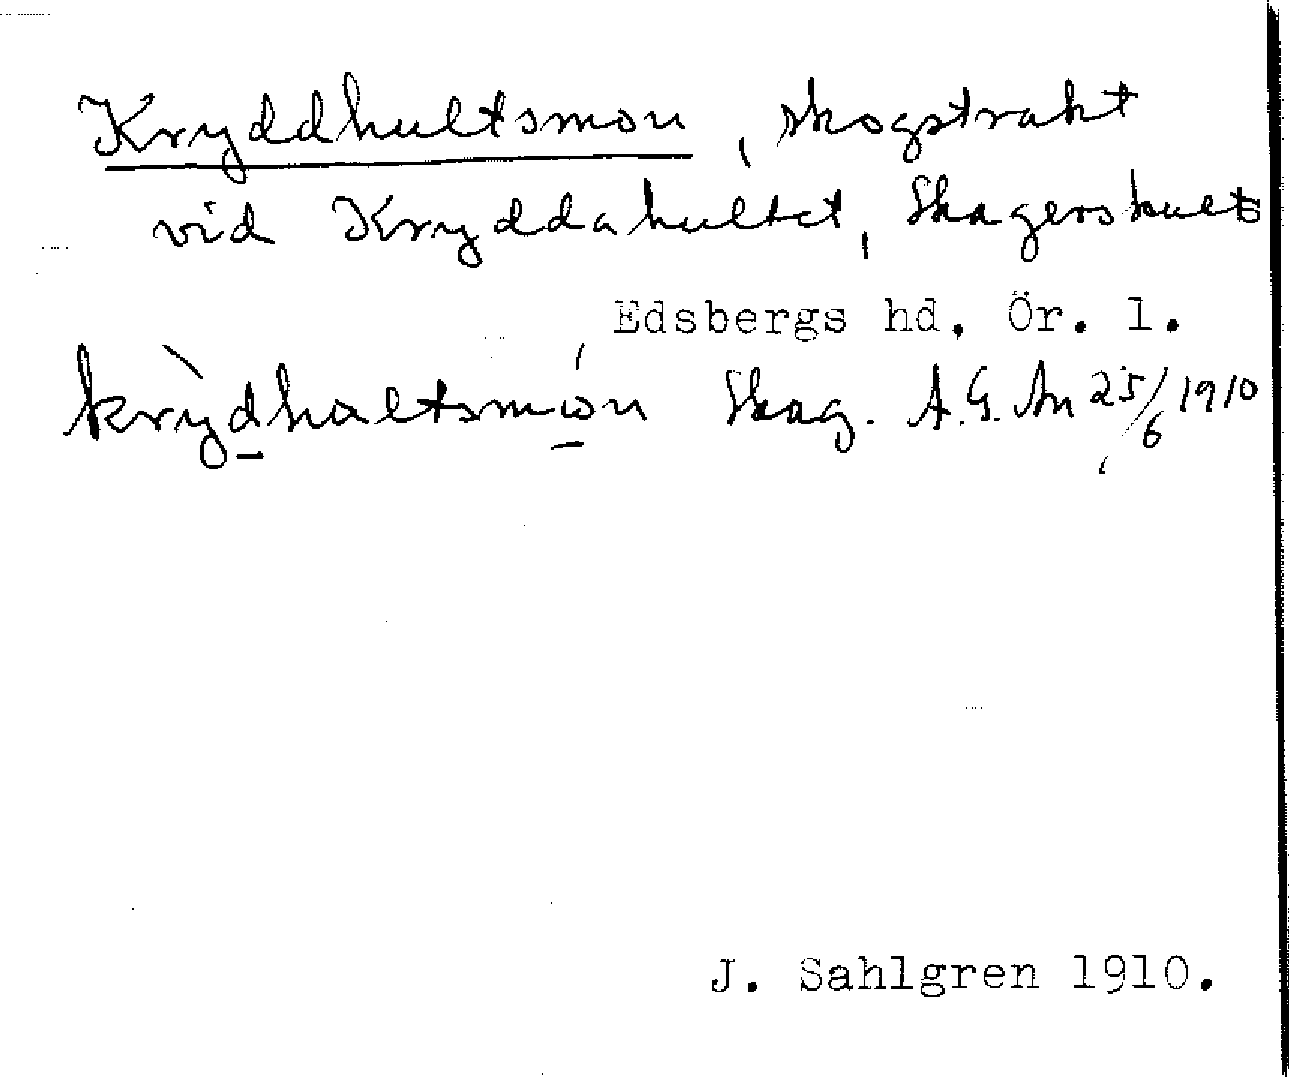 Kryddhultsmon, skogstrakt
vid Kryddahultet, Skagershults
Edsbergs hd. Ör. l.
krỳdhaltsmón Skag. A.G. An 25/6 1910
J. Sahlgren 1910.